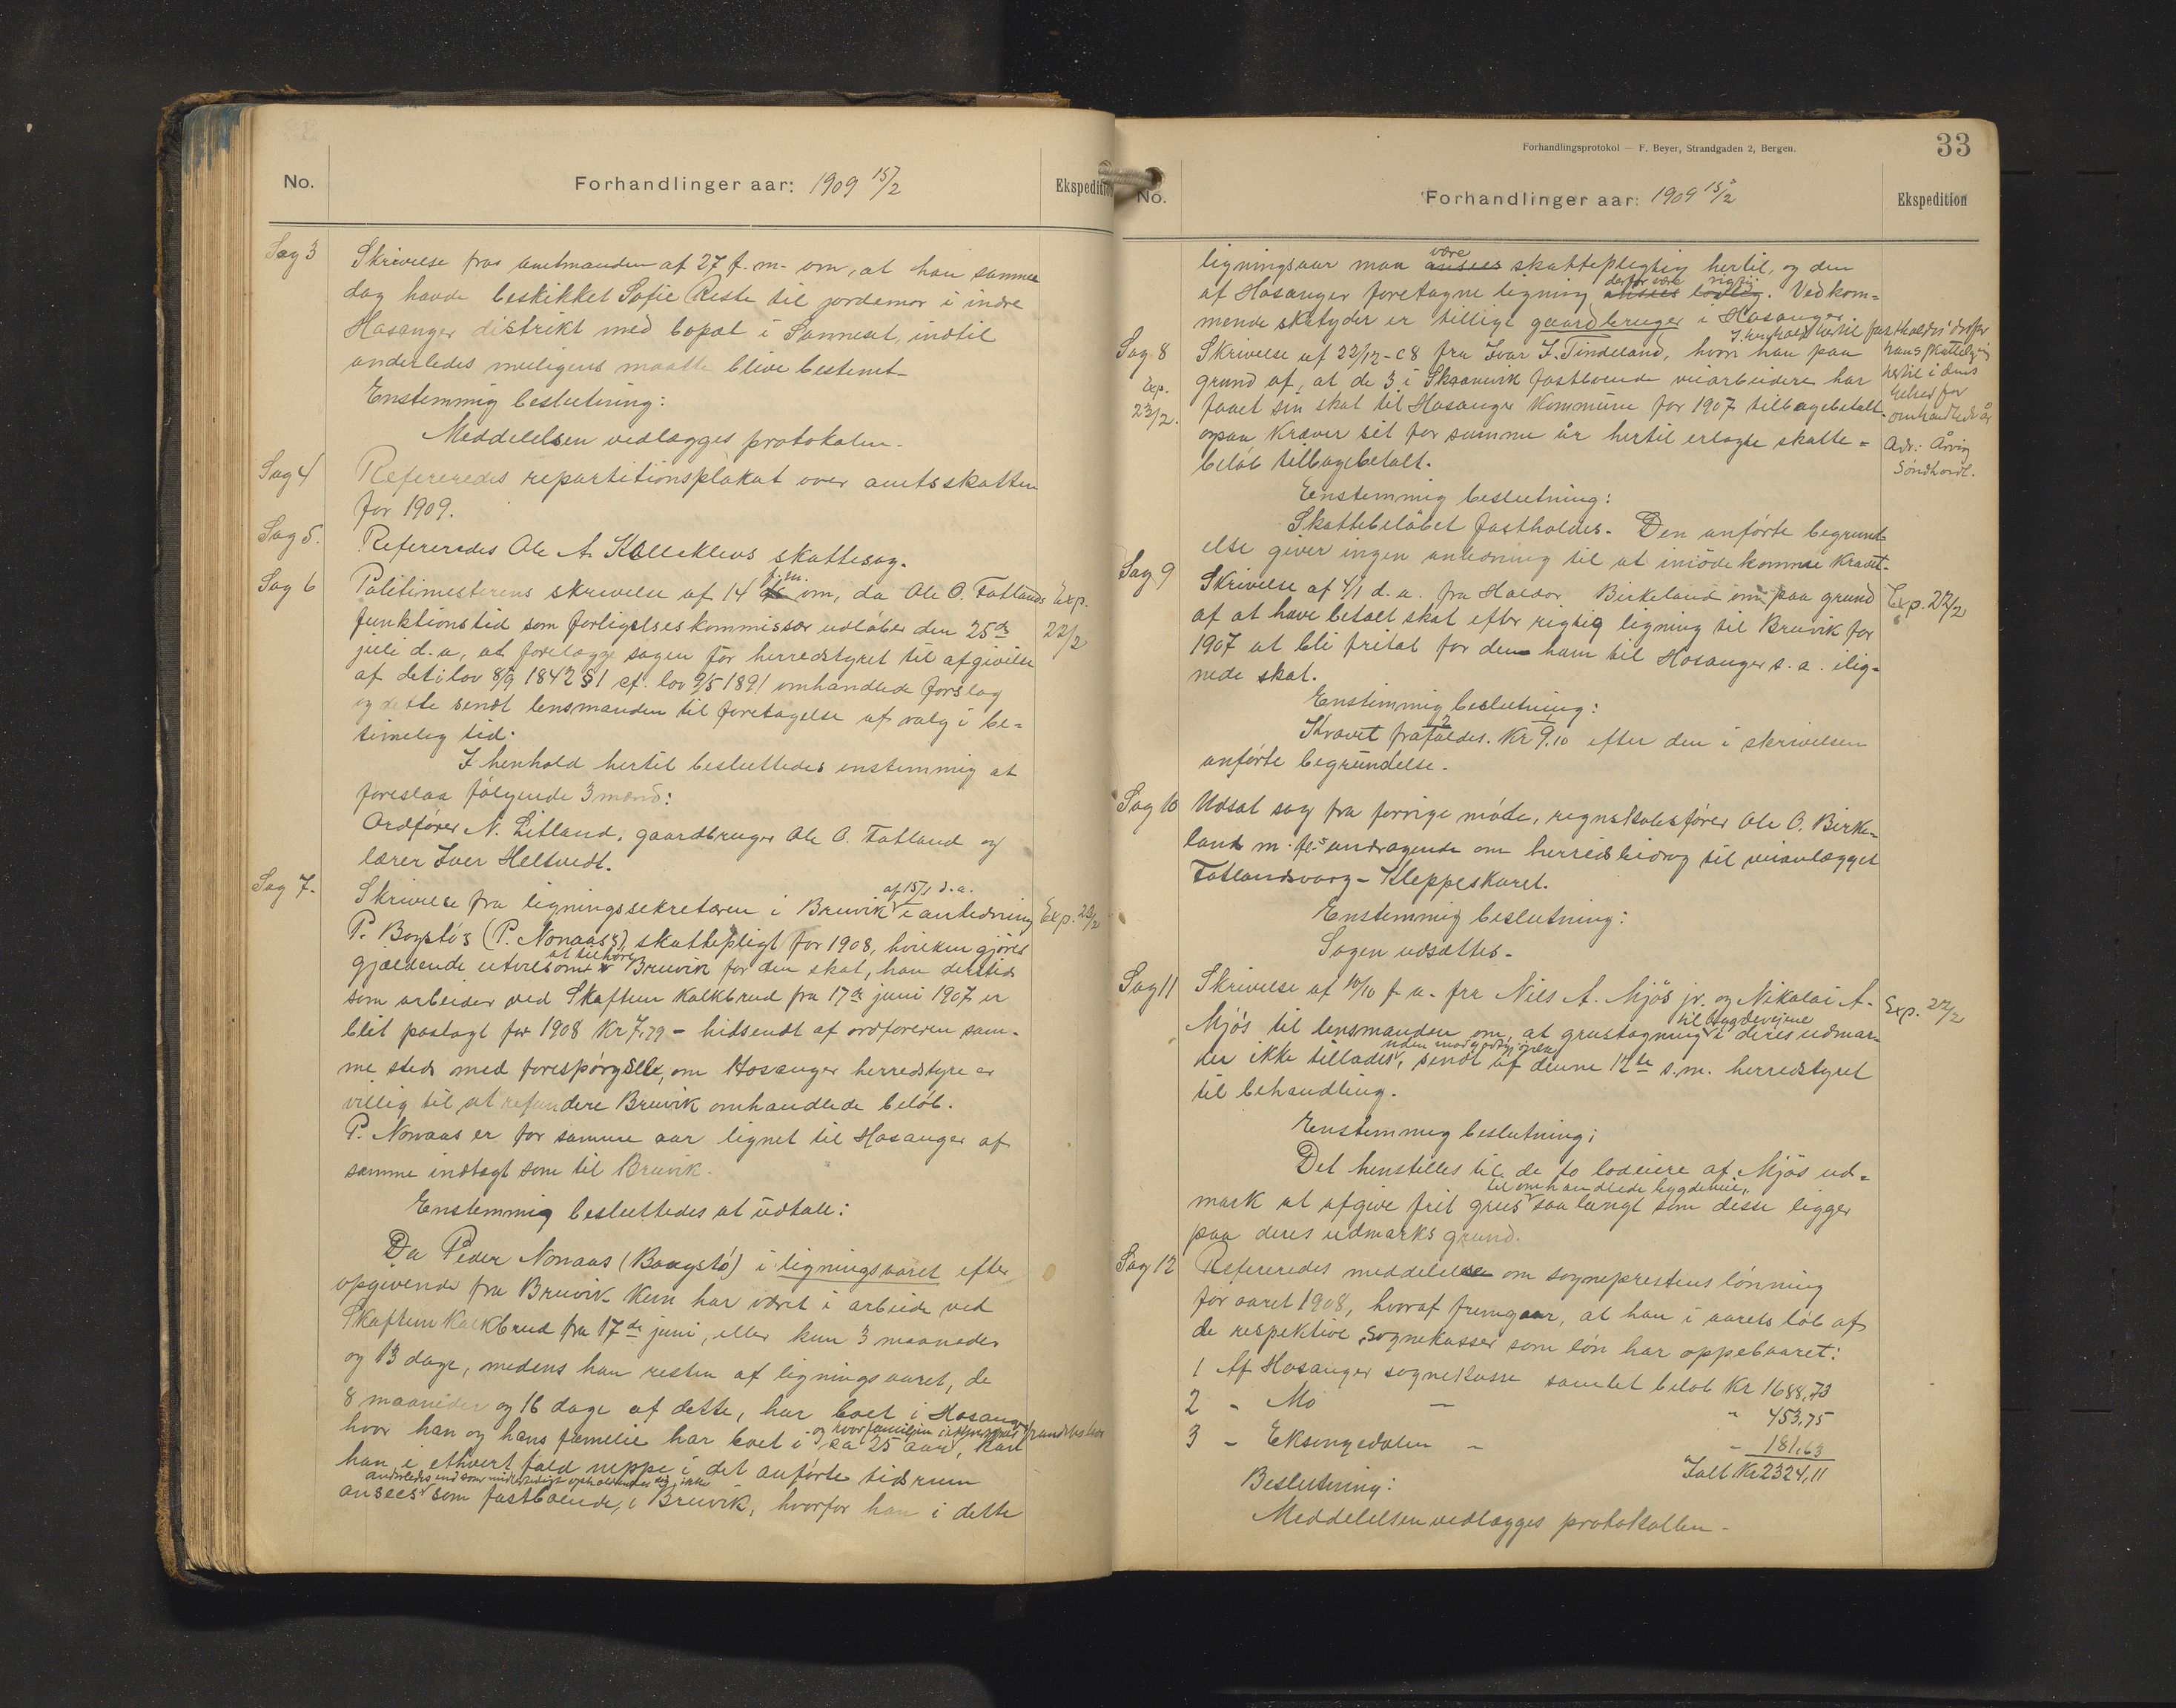 No.
Forhandlinger aar: 1909 15/2
Ekspedition
Sag 3
Skrivelse fra amtmanden af 27 f. m. om, at han samme
dag havde beskikket Sofie Reste til jordemor i indre
Hosanger distrikt med bopæl i Sannest, indtil
anderledes muligens maatte blive bestemt.
Enstemmig beslutning:
Meddelelsen vedlægges protokolen.
Sag 4
Refereredes repartitionsplakat over amtsskatten
for 1909.
Sag 5.
Refereredes Ole A. Kalleklevs skattesag.
Sag 6
Politimesterens skrivelse af 14 f. m. om, da Ole O. Fatlands
Exp. 22/2
funktionstid som forligelseskommissær udløber den 25de
juli d. a., at forelægge sagen for herredstyret til afgivelse
af det i lov 8/9 1842 § 1 cf. lov 9/5 1891 omhandlede forslag
og dette sendt lensmanden til foretagelse af valg i be=
timelig tid.
I henhold hertil besluttedes enstemmig at
foreslaa følgende 3 mænd:
Ordfører N. Litland, gaardbruger Ole O. Fatland og
lærer Iver Heltvedt.
Sag 7.
Skrivelse fra ligningssekretæren i Bruvik af 15/1 d. a. i anledning
Exp. 23/2
P. Bøystøs (P. Nonaas's) skattepligt for 1908, hvilken gjøres
gjældende utvilsomt at tilhøre Bruvik for den skat, han dersteds
som arbeider ved Skaftun kalkbrud fra 17de juni 1907 er
blit paalagt for 1908 Kr 7,79 - hidsendt af ordføreren sam=
me steds med forespørgselle, om Hosanger herredstyre er
villig til at refundere Bruvik omhandlede beløb.
P. Nonaas er for samme aar lignet til Hosanger af
samme indtægt som til Bruvik.
Enstemmig besluttedes at udtale:
Da Peder Nonaas (Bøystø) i ligningsaaret efter
opgivende fra Bruvik kun har været i arbeide ved
Skaftun Kalkbrud fra 17de juni, eller kun 3 maaneder
og 13 dage, medens han resten af ligningsaaret, de
8 maaneder og 16 dage af dette, har boet i Hosanger
hvor han og hans familie har boet i ca 25 aar, kan
han i ethvert fald neppe i det anførte tidsrum
anderledes end som midlertidigt opholdende sig ikke
ansees som fastboende, i Bruvik, hvorfor han i dette
Forhandlingsprotokol — F. Beyer, Strandgaden 2, Bergen.
33
No.
Forhandlinger aar: 1909 15/2
Ekspedition
ligningsaar maa være ansees skattepligtig hertil, og den
af Hosanger foretagne ligning derfor være rigtig ansees lovlig. Vedkom=
mende skatyder er tilligt gaardbruger i Hosanger.
I henhold hertil fastholdes derfor
hans skattelign
hertil i dens
helhed for
omhandlede år
Sag 8
Exp. 23/2.
Skrivelse af 22/12-08 fra Ivar J. Tindeland, hvori han paa
grund af, at de 3 i Skaanevik fastboende veiarbeidere har
faaet sin skat til Hosanger Kommune for 1907 tilbagebetalt
ogsaa kræver sit for samme år hertil erlagte skatte=
beløb tilbagebetalt.
Adr: Årvig
Söndhordl.
Enstemmig beslutning:
Skattebeløbet fastholdes. Den anførte begrund=
else giver ingen anledning til at imødekomme kravet.
Sag 9
Skrivelse af 4/1 d. a. fra Haldor Birkeland om paa grund
Exp. 22/2
af at have betalt skat efter rigtig ligning til Bruvik for
1907 at bli fritat for den ham til Hosanger s. a. ilig=
nede skat.
Enstimmig beslutning:
Kravet frafaldes. Kr 9,10 efter den i skrivelsen
anførte begrundelse.
Sag 10
Udsat sag fra forrige møde, regnskabsfører Ole O. Birke=
land m. fl.s andragende om herredsbidrag til veianlægget
Fatlandsvaag - Kleppeskaret.
Enstemmig beslutning:
Sagen udsættes.
Sag 11
Skrivelse af 10/10 f. a. fra Nils A. Mjøs jr. og Nikolai A.
Exp. 22/2
Mjøs til lensmanden om, at grustagning til bygdeveiene i deres udmar=
ker ikke tillades uden mod godtgjørelse, sendt af denne 12te s. m. herredstyret
til behandling.
Enstemmig beslutning:
Det henstilles til de to lodeiere af Mjøs ud=
mark at afgive frit grus til omhandlede bygdeveie, saa langt som disse ligger
paa deres udmarks grund.
Sag 12
Refereredes meddelelse om sogneprestens lønning
for aaret 1908, hvoraf fremgaar, at han i aarets løb af
de respektive sognekasser som løn har oppebaaret:
1 Af Hosanger sognekasse samlet beløb Kr 1688,73
2 - Mo — - 453,75
3 - Eksingedalen - - 181,63
Ialt Kr 2324,11
Beslutning:
Meddelelsen vedlægges protokollen.